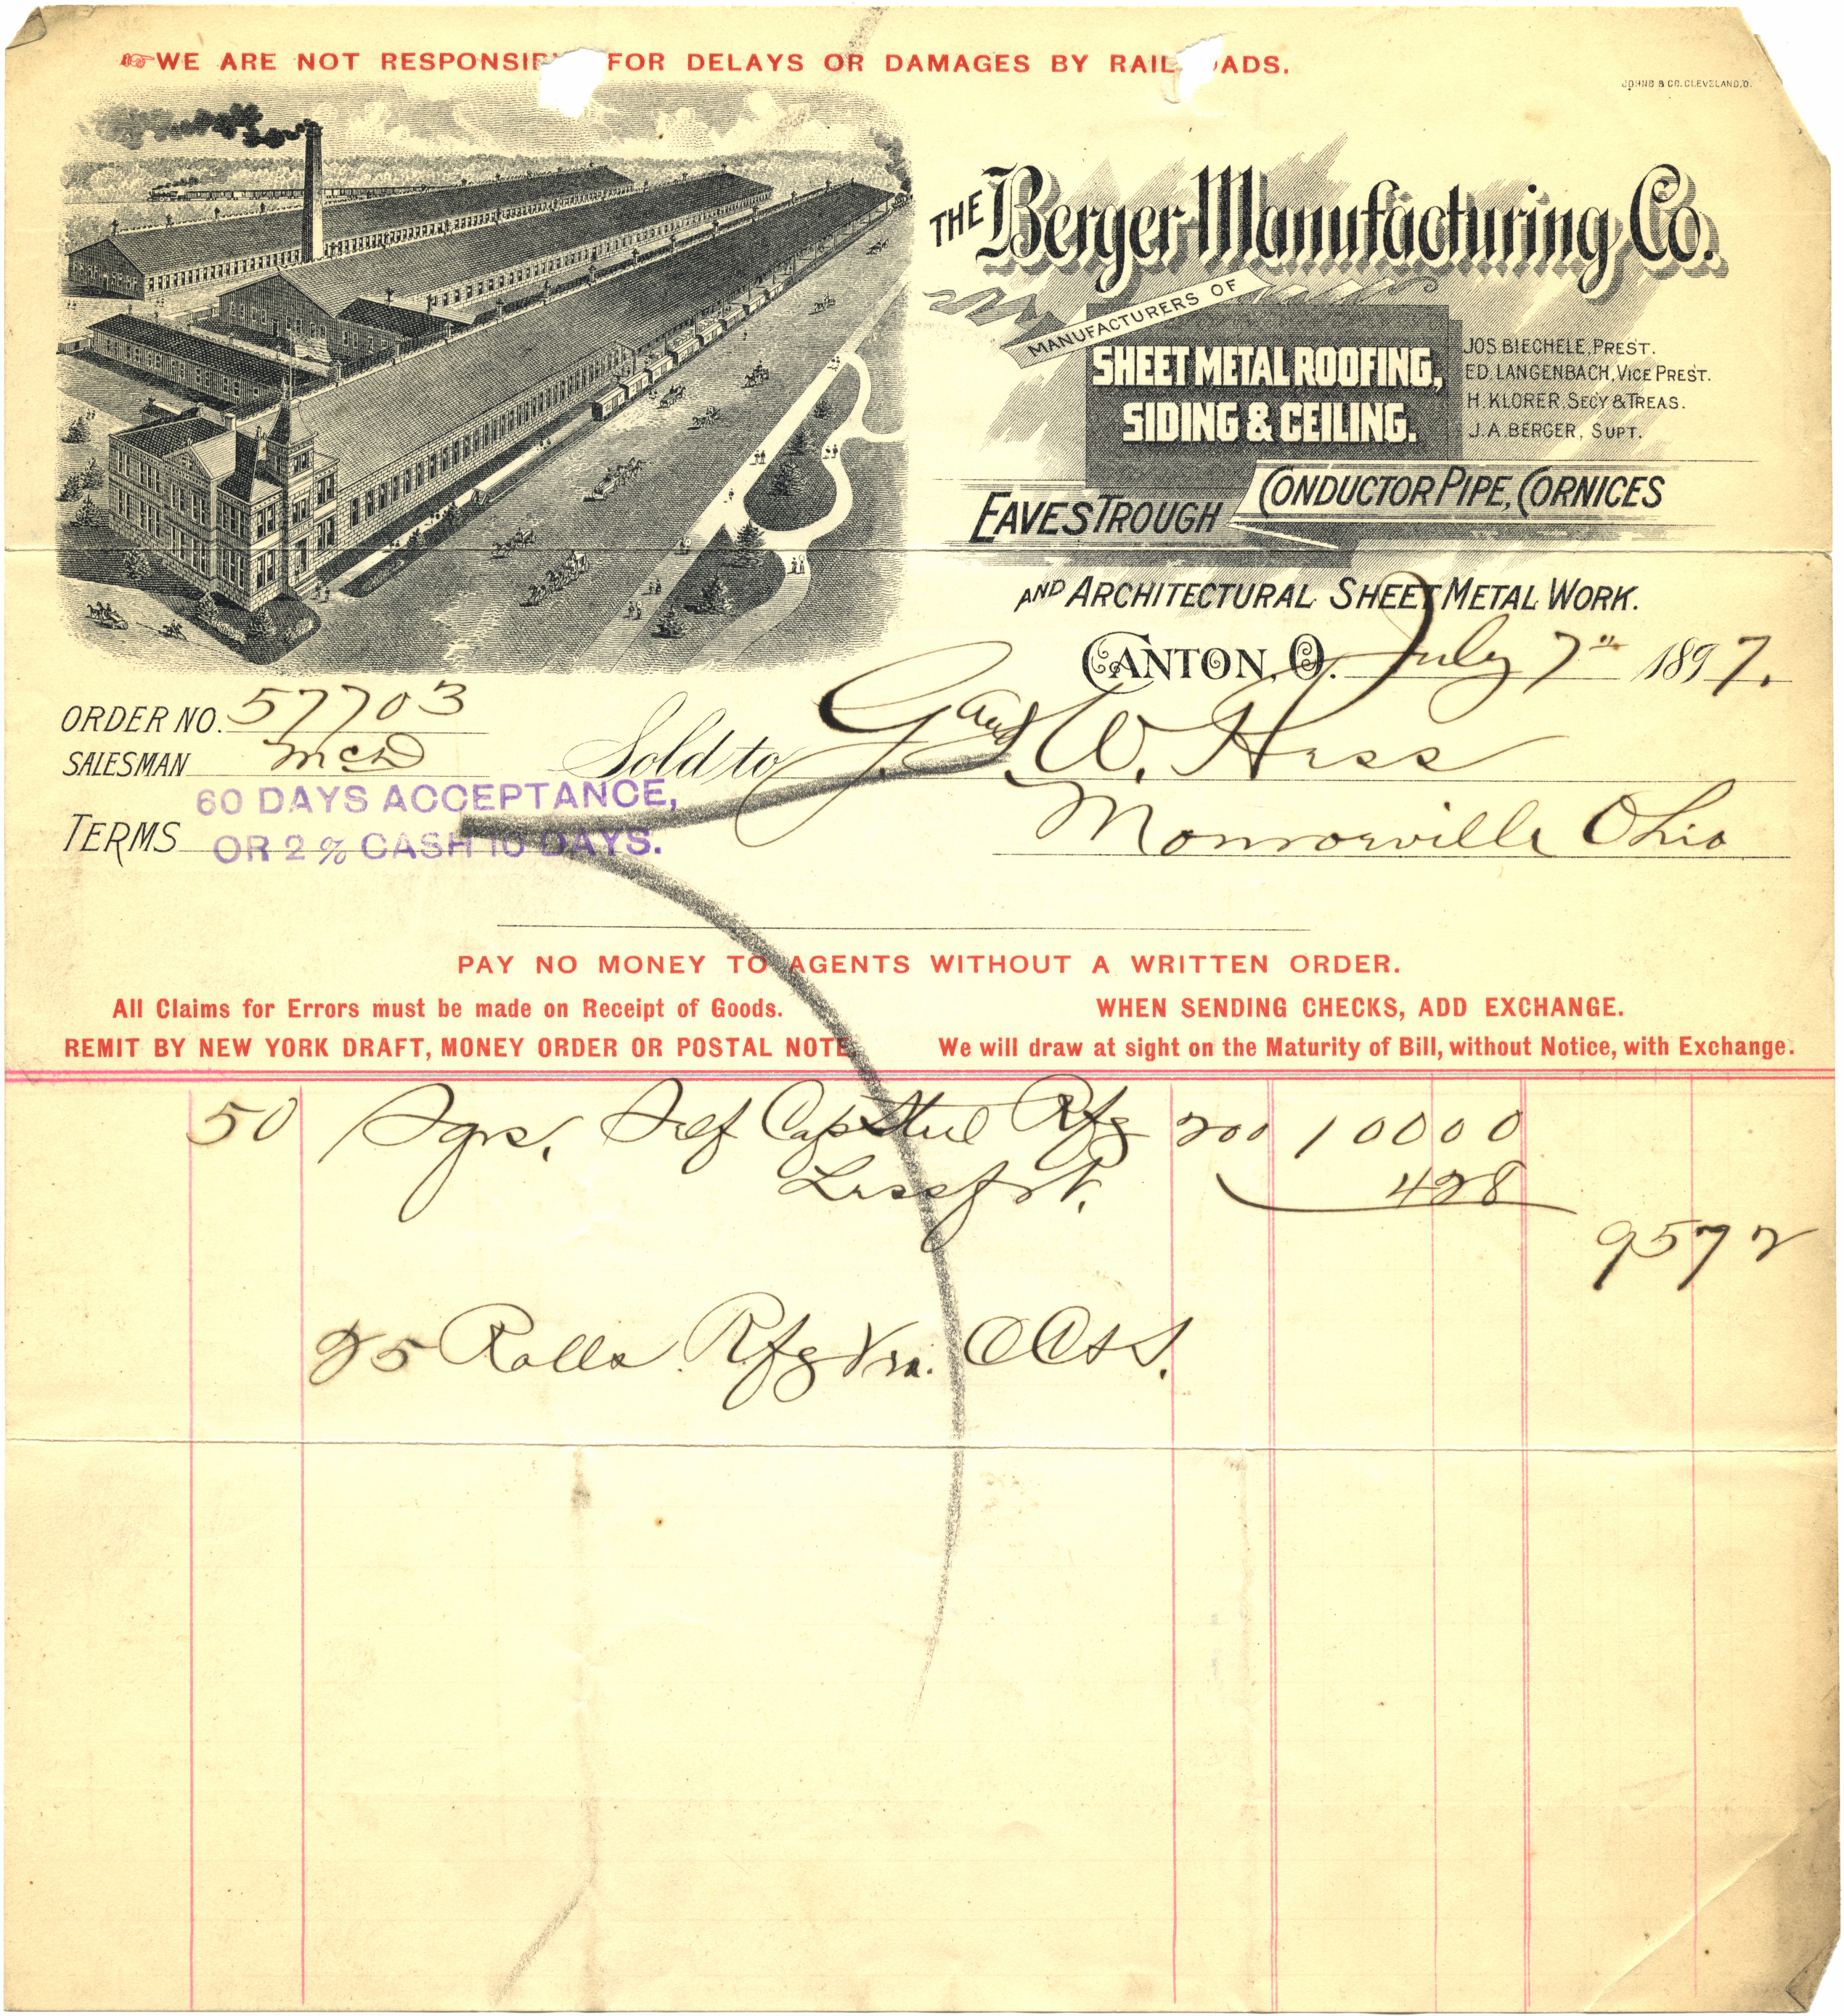 WE ARE NOT RESPONSIB FOR DELAYS OR DAMAGES BY RAIL OADS.
JOHNS & CO. CLEVELAND, O.
THE Berger Manufacturing Co.
MANUFACTURERS OF
SHEET METAL ROOFING,
SIDING & CEILING.
JOS. BIECHELE, PREST.
ED. LANGENBACH, VICE PREST.
H. KLORER, SECY & TREAS.
J. A. BERGER, SUPT.
EAVES TROUGH CONDUCTOR PIPE, CORNICES
AND ARCHITECTURAL SHEET METAL WORK.
CANTON, O. July 7th 1897.
ORDER NO. 57703
SALESMAN McD
Sold to G. and W. Hess
Monroeville Ohio
TERMS 60 DAYS ACCEPTANCE,
OR 2 % CASH 10 DAYS.
PAY NO MONEY TO AGENTS WITHOUT A WRITTEN ORDER.
All Claims for Errors must be made on Receipt of Goods.
WHEN SENDING CHECKS, ADD EXCHANGE.
REMIT BY NEW YORK DRAFT, MONEY ORDER OR POSTAL NOTE.
We will draw at sight on the Maturity of Bill, without Notice, with Exchange.
50 Sqrs. Self Cap Steel Rfg 200 10000
Less frt. 428
9572
25 Rolls Rfg Via.